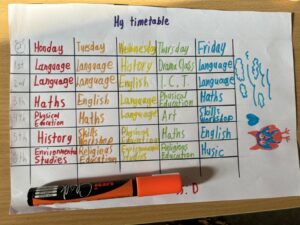 My timetable
Monday Tuesday Wednesday Thursday Friday
1st Language Language History Drama Class Language
2nd Language Language English I.C.T Language
3rd Maths English Language Physical Education Maths
4th Physical Education Maths Language Art Skills workshop
5th History Skills workshop Physical Education Maths English
6th Environmental Studies Religious Education Environmental Studies Religious Education Music